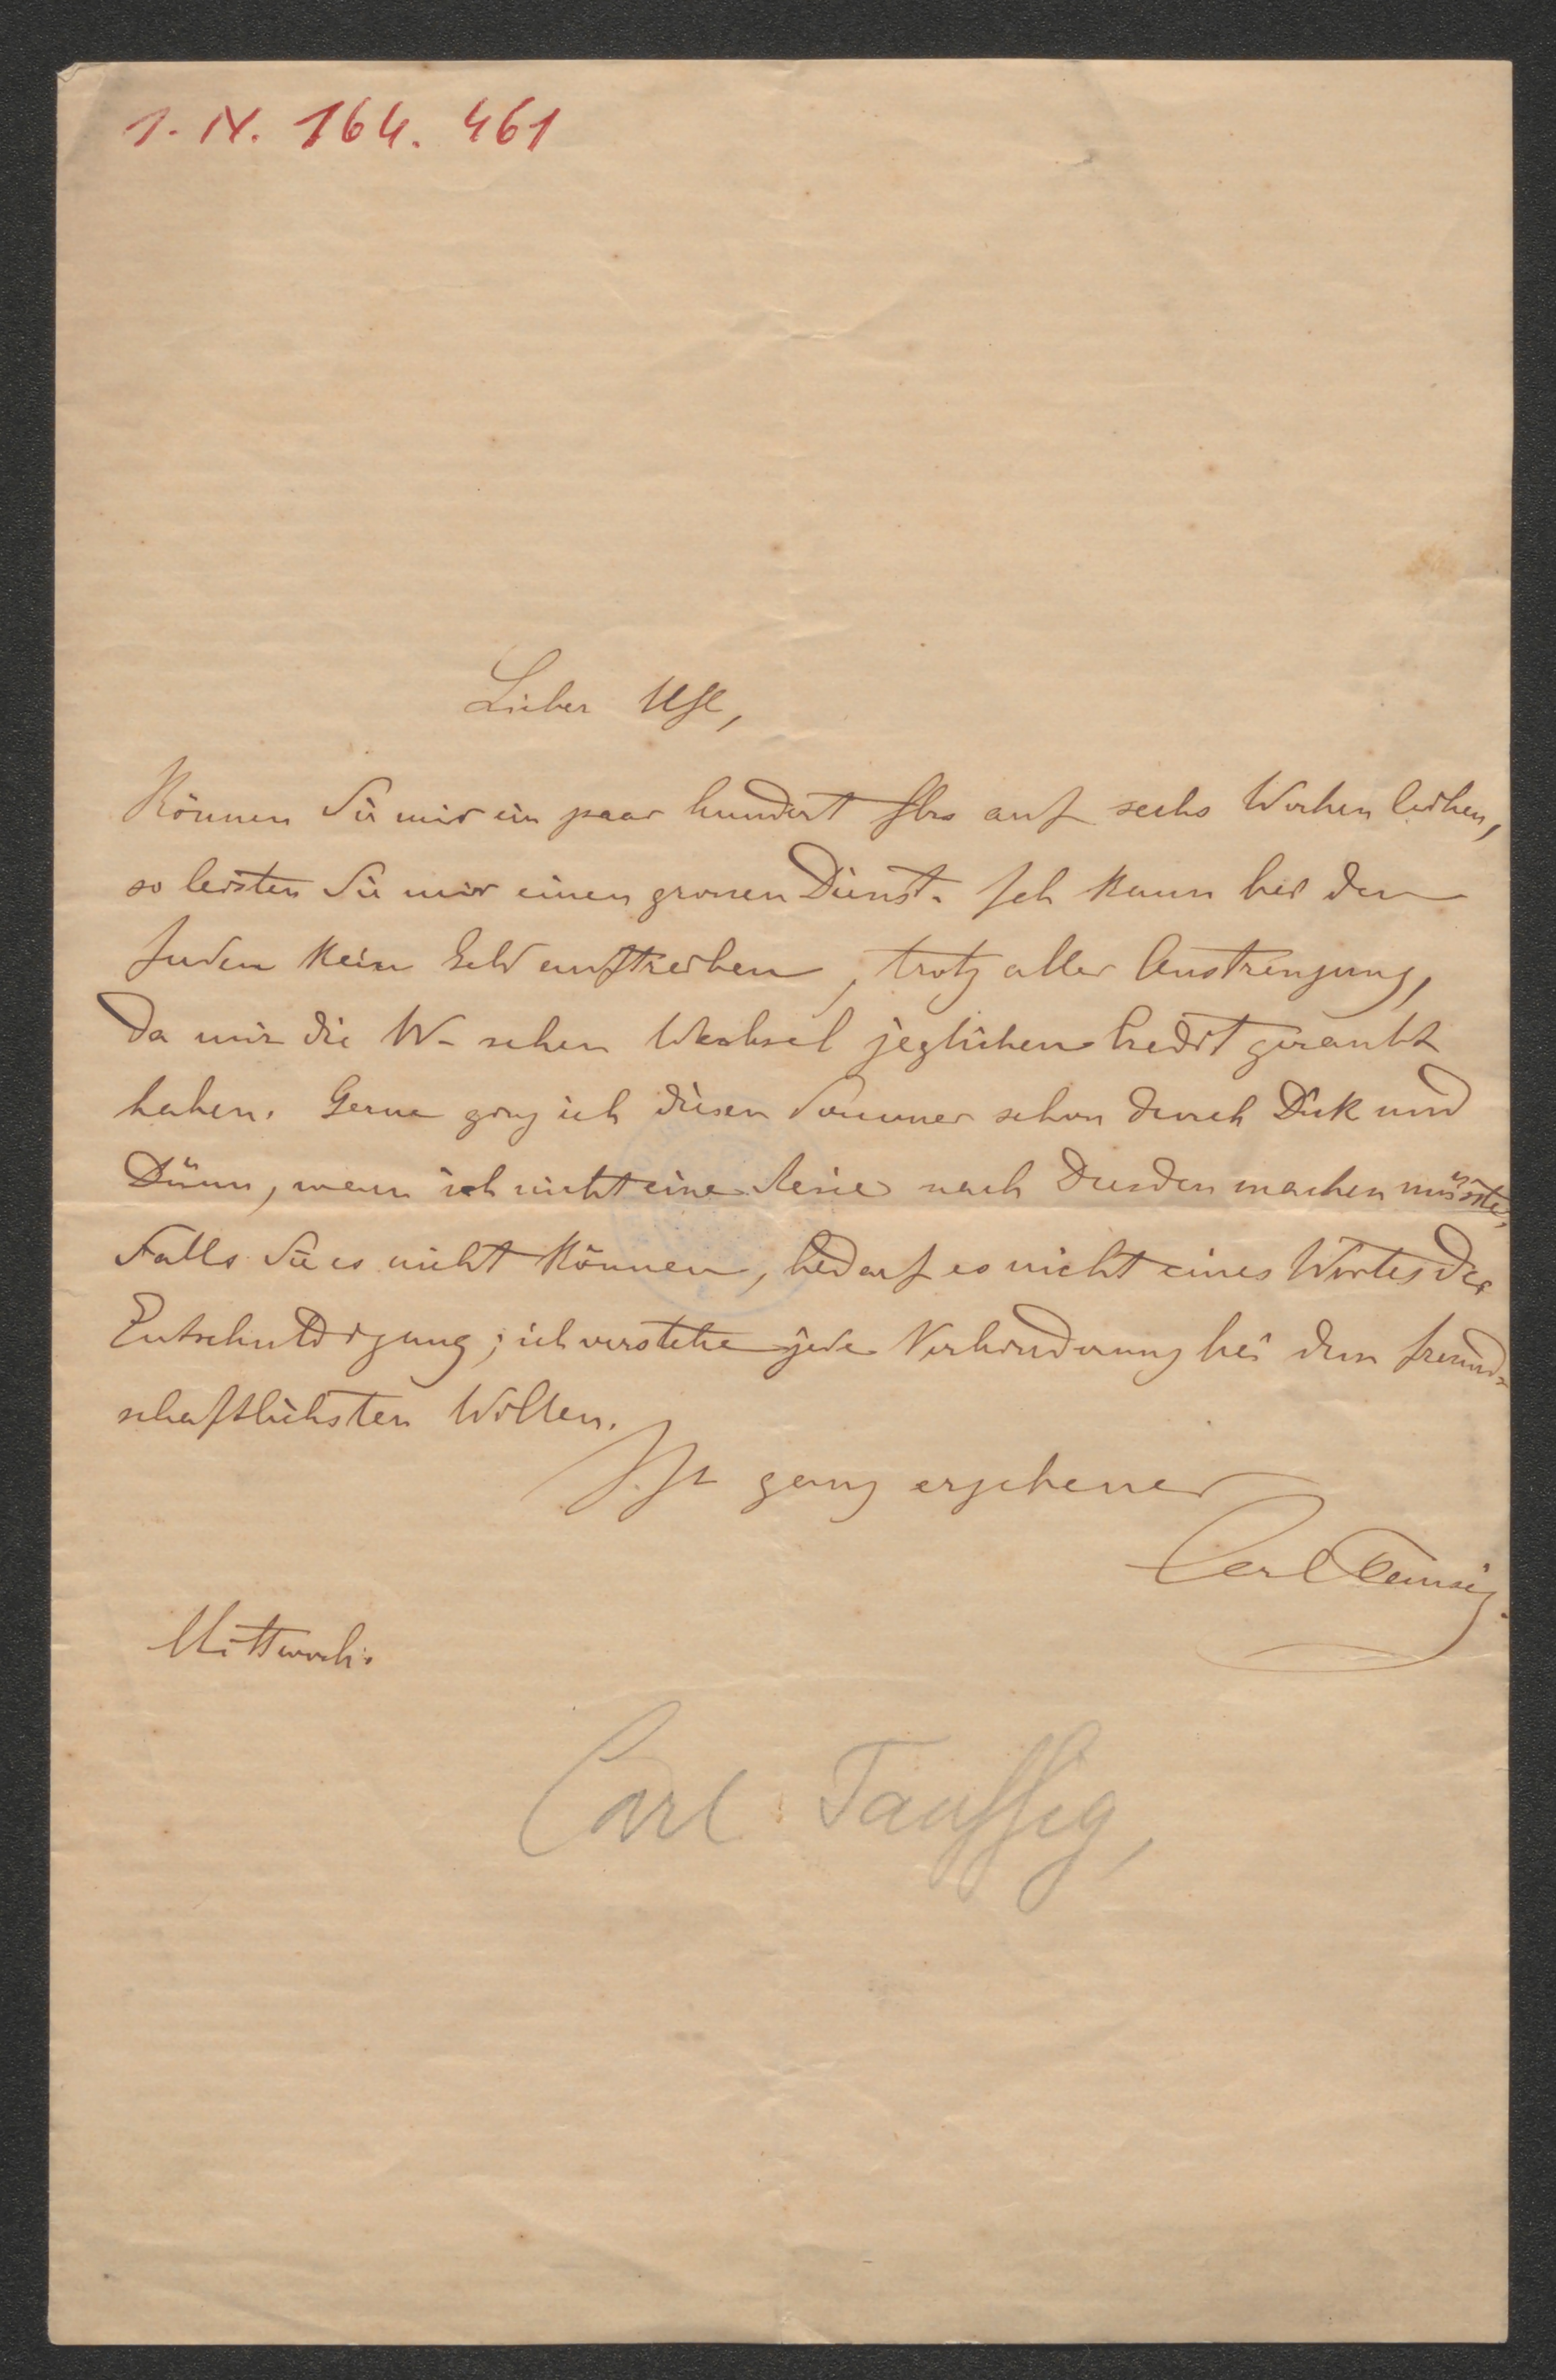 I. N. 164. 461
Lieber Uhl,
Können Sie mir ein paar hundert fl auf sechs Wochen leihen,
so leisten Sie mir einen grossen Dienst. Ich kann bei den
Juden kein Geld auftreiben, trotz aller Anstrengung,
da mir die W- schen Wechsel jeglichen Credit geraubt
haben. Gerne ging ich diesen Sommer schon durch Dick und
Dünn, wenn ich nicht eine Reise nach Dresden machen müsste,
Falls Sie es nicht können, bedarf es nicht eines Wortes der
Entschuldigung; ich verstehe jede Verhinderung bei dem freund-
schaftlichsten Willen.
Ihr ganz ergebener
Carl Tausig.
Mittwoch.
Carl Taussig,